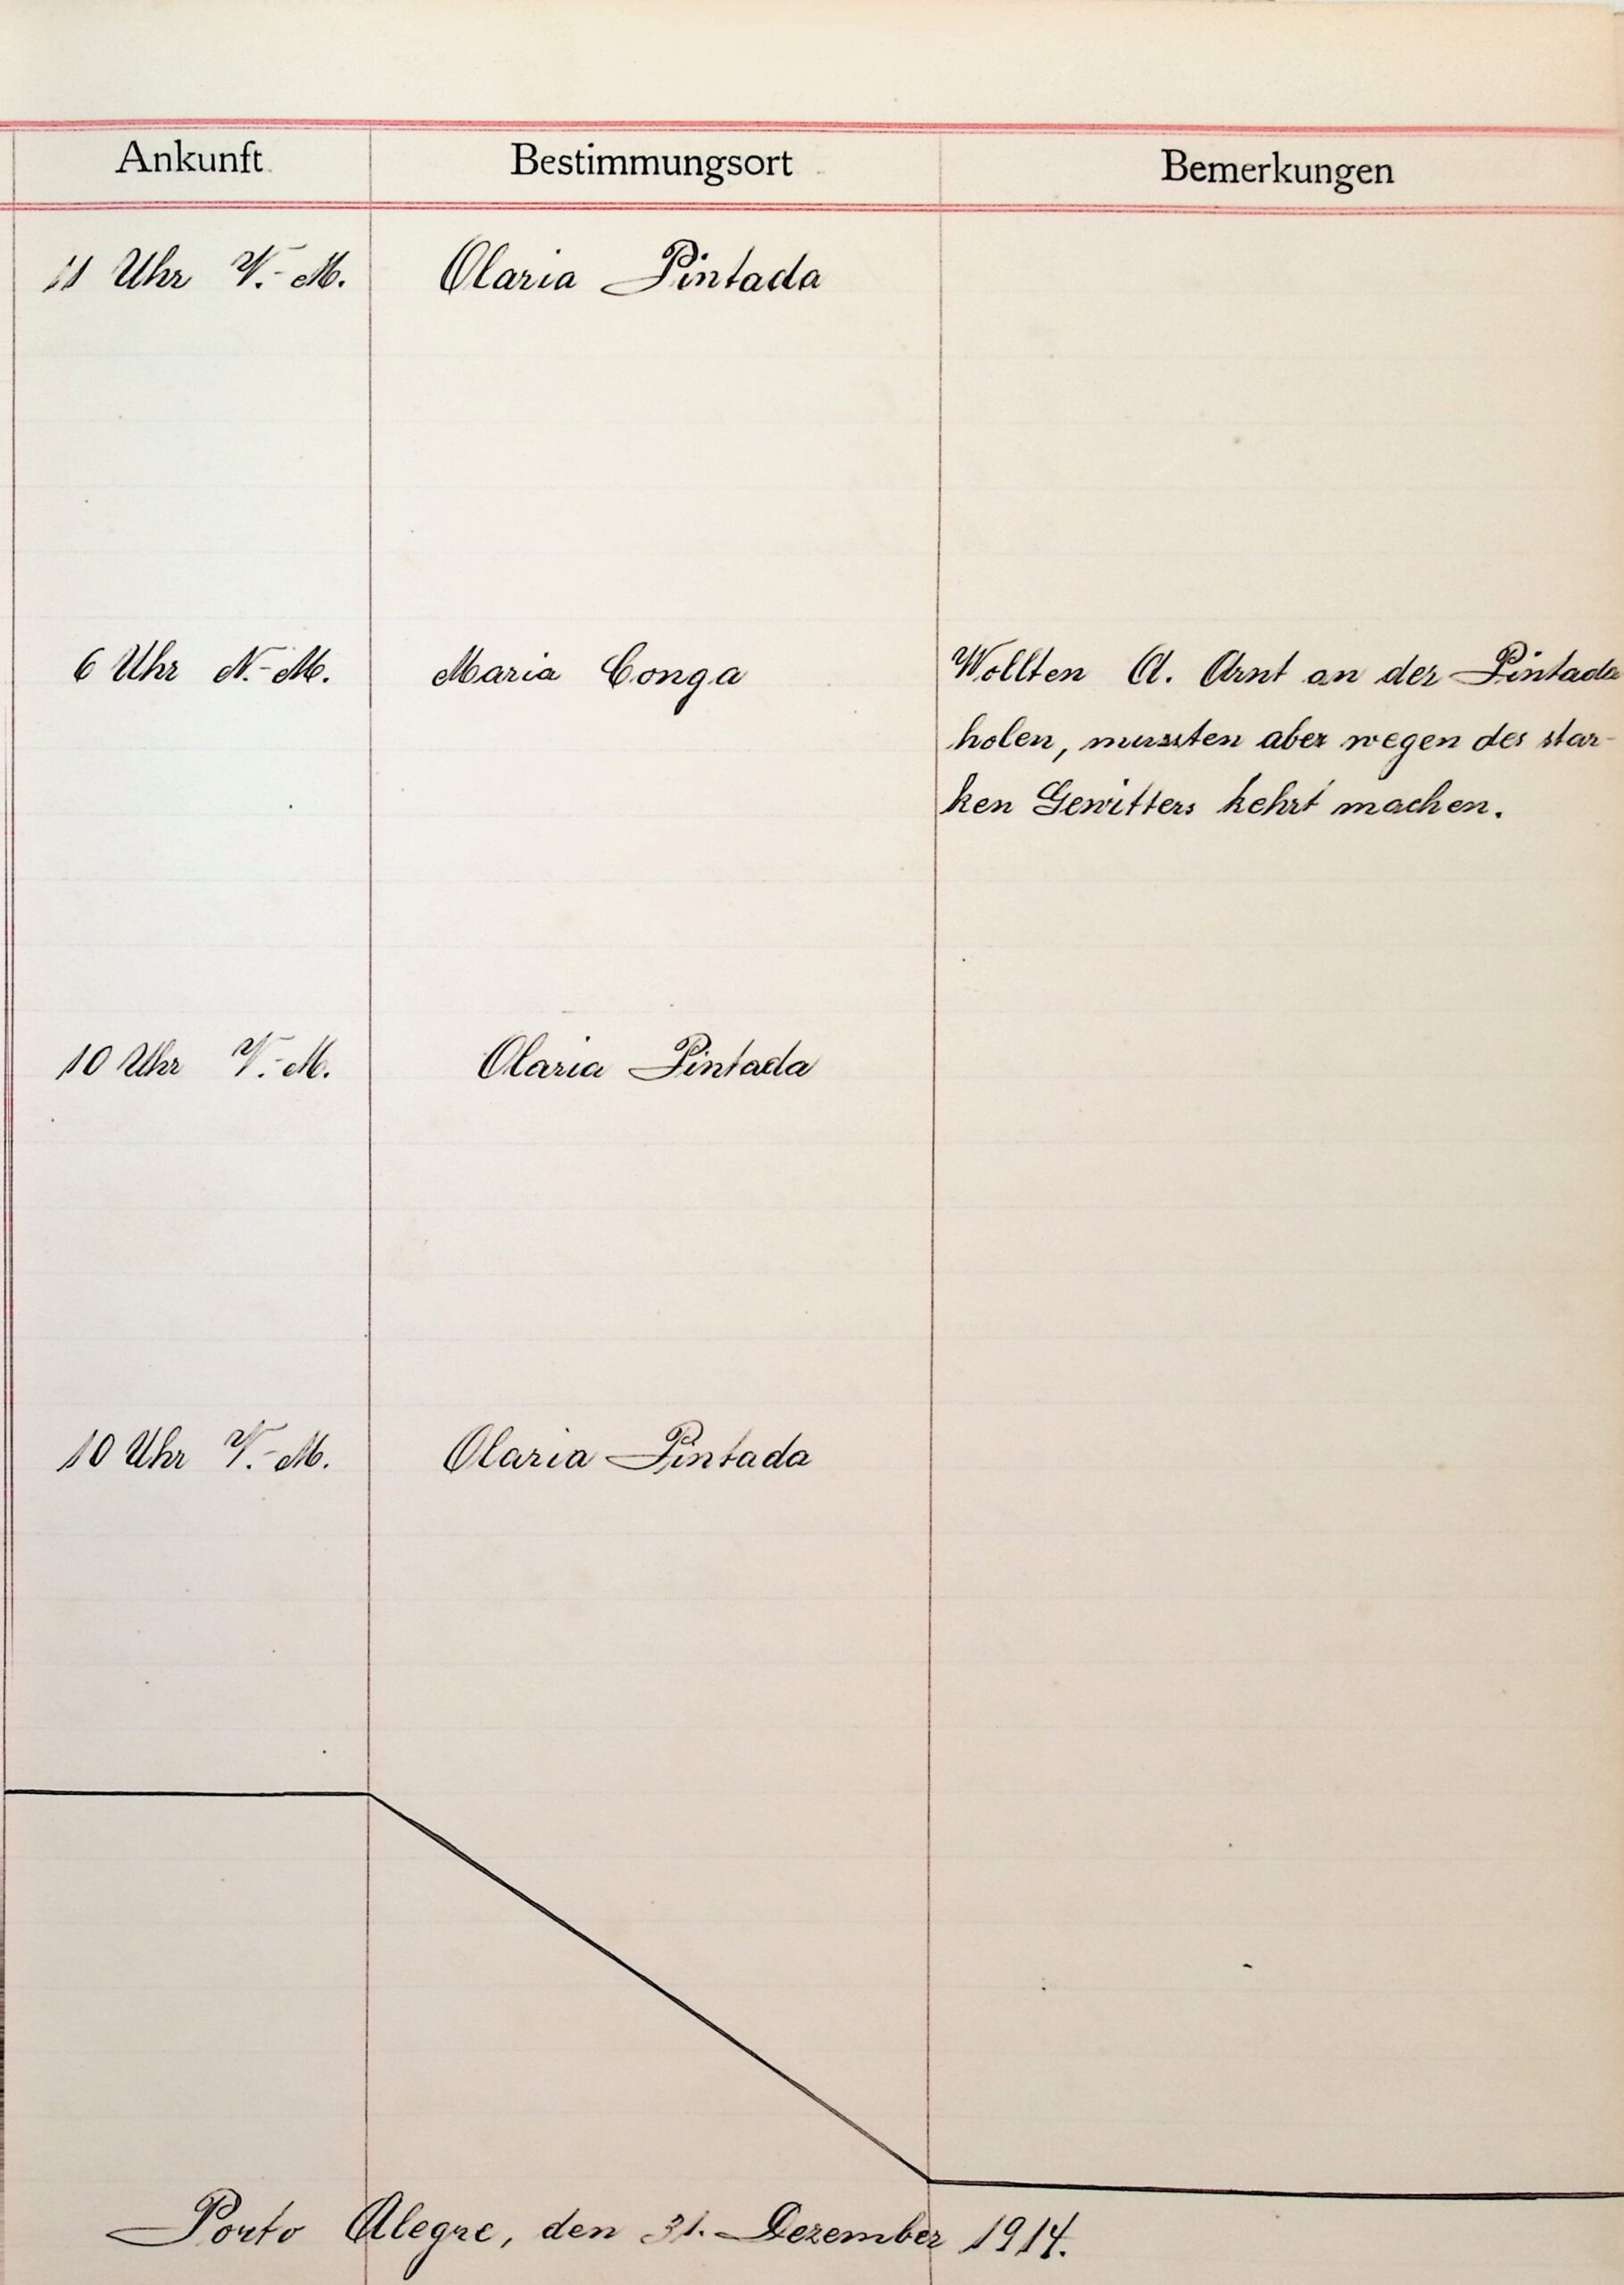 Ankunft Bestimmungsort Bemerkungen
11 Uhr V.-M. Olaria Pintada
6 Uhr N.-M. Maria Conga Wollten A. Arnt an der Pintada
holen, mussten aber wegen des star-
ken Gewitters kehrt machen.
10 Uhr V.-M. Olaria Pintada
10 Uhr V.-M. Olaria Pintada
Porto Alegre, den 31. Dezember 1914.